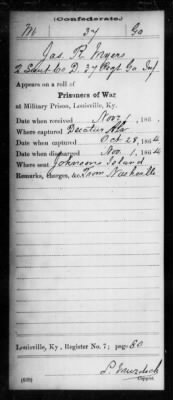 (Confederate.)
M 37 Ga
Jas. R. Myers
2 Lieut Co D. 37 Regt Ga Inf
Appears on a roll of
Prisoners of War
at Military Prison, Louisville, Ky.
Date when received Nov 1, 186
Where captured Decatur Ala
Date when captured Oct 28, 1864
Date when discharged Nov. 1, 1864
Where sent Johnsons Island
Remarks, charges, &c. From Nashville
Louisville, Ky., Register No. 7; page 80
L. Murdoch
Copyist.